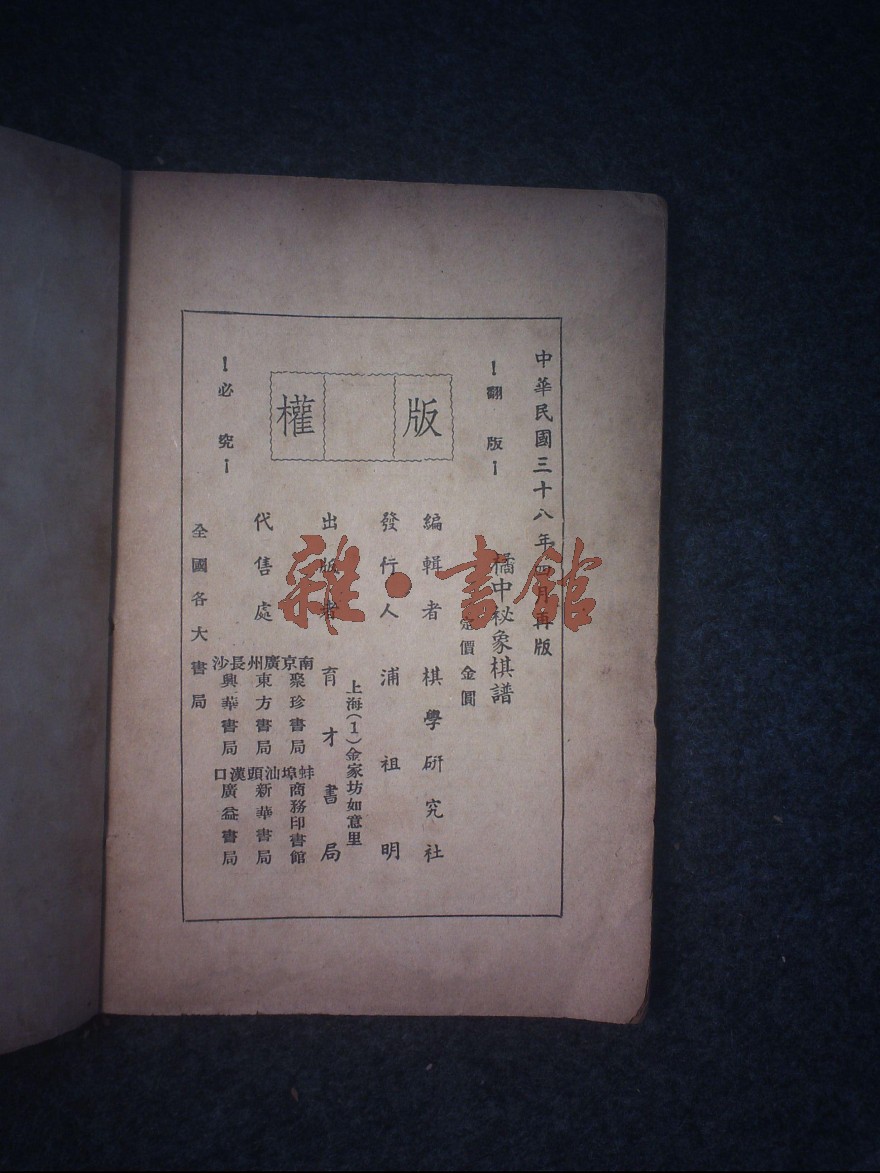 中華民國三十八年四月再版
橘中秘象棋譜
！翻版！
定價金圓
版權
編輯者 棋學研究社
發行人 浦祖明
上海(1)金家坊如意里
出版者 育才書局
代售處
南京 聚珍書局
廣州 東方書局
長沙 興華書局
蚌埠 商務印書館
汕頭 新華書局
漢口 廣益書局
！必究！
全國各大書局
雜·書館